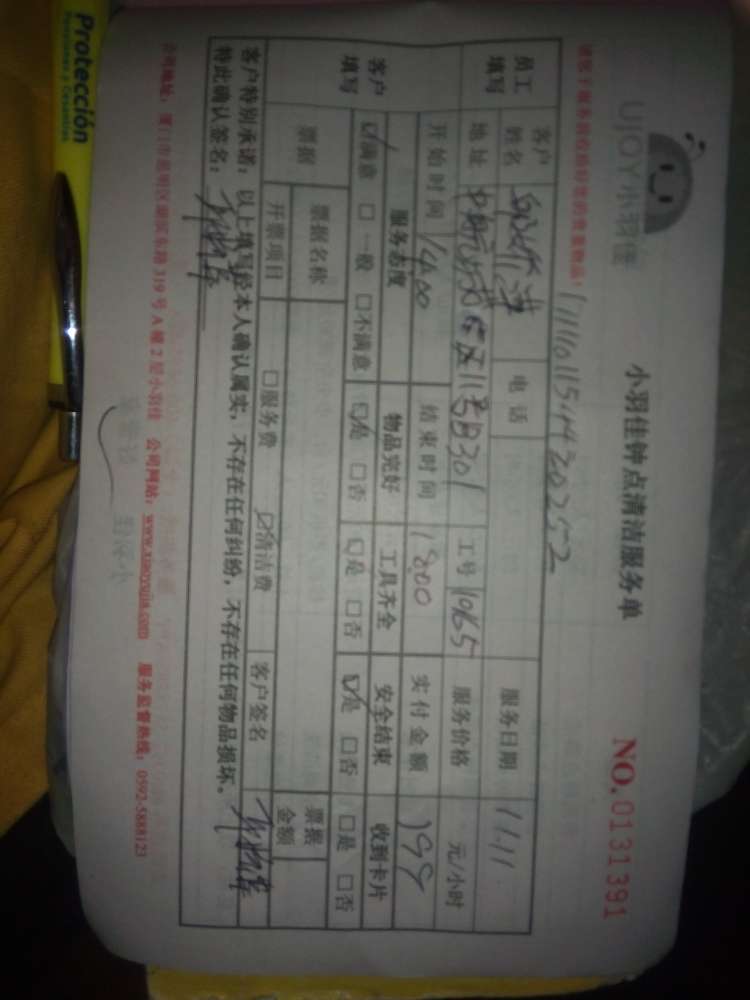 UJOY小羽佳
小羽佳钟点清洁服务单
NO.0131391
请您于服务前收拾好您的贵重物品!
员工填写
客户姓名
电话
服务日期
11.11
地址
工号
1065
服务价格
元/小时
开始时间
1400
结束时间
1800
实付金额
199
客户填写
服务态度
物品完好
工具齐全
安全结束
收到卡片
☑满意 □一般 □不满意
☑是 □否
☑是 □否
☑是 □否
□是 □否
票据
票据名称
票据金额
开票项目
□服务费
☑清洁费
客户签名
客户特别承诺:以上填写经本人确认属实,不存在任何纠纷,不存在任何物品损坏。
特此确认签名:
公司地址:厦门市思明区湖滨东路319号A幢2层小羽佳 公司网站:www.xiaoyujia.com 服务监督热线:0592-5888123
Protección
Pensiones y Cesantías